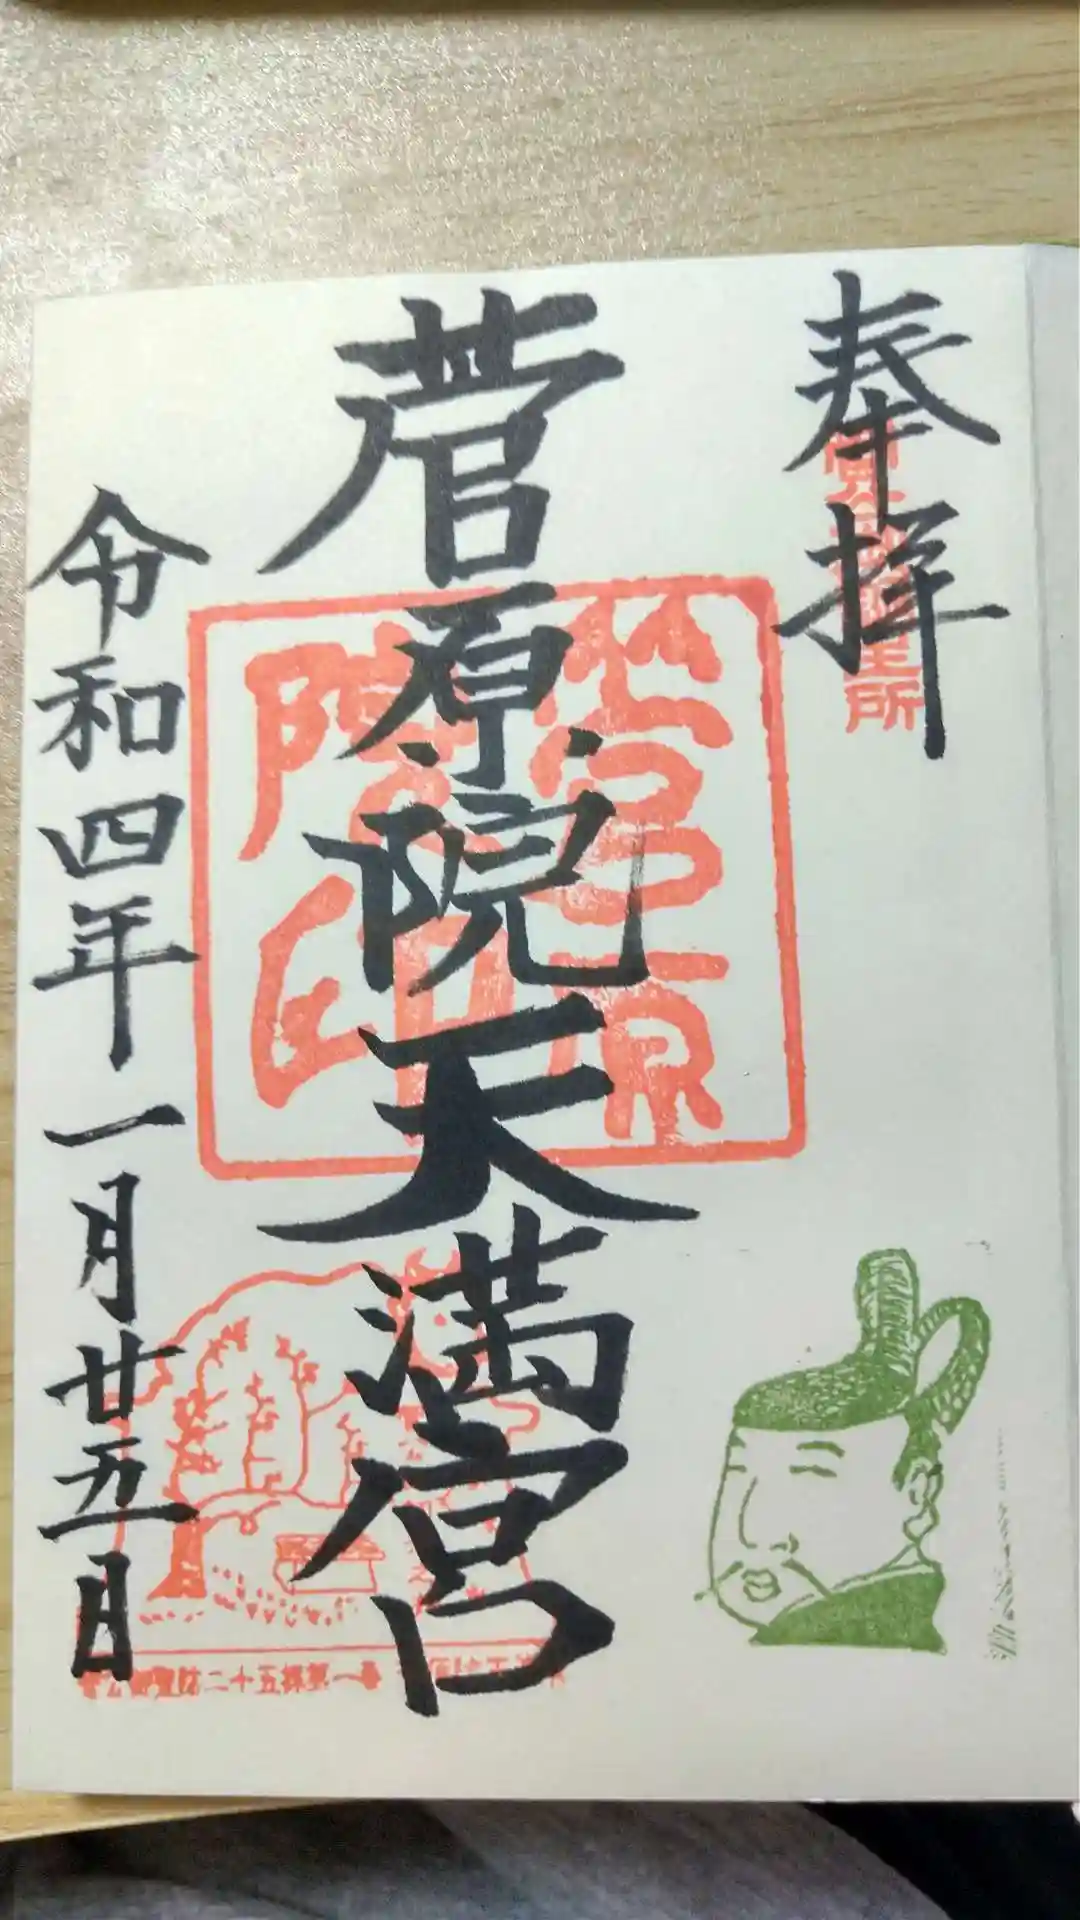 奉拝
菅原院天満宮
令和四年一月廿五日
菅原院印